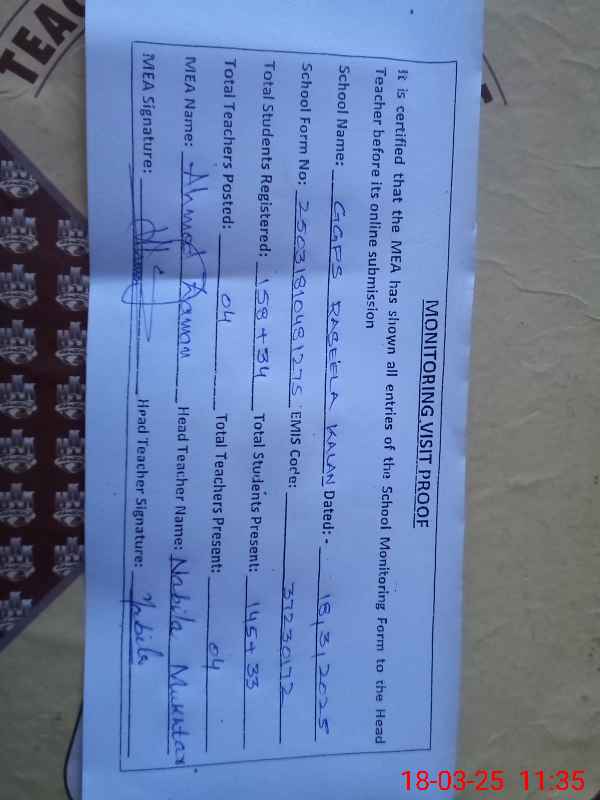 MONITORING VISIT PROOF
It is certified that the MEA has shown all entries of the School Monitoring Form to the Head
Teacher before its online submission
School Name: GGPS RABEELA KALAN Dated:- 18,3,2025
School Form No: 25031810481275 EMIS Code: 37230172
Total Students Registered: 158+34 Total Students Present: 145+33
Total Teachers Posted: 04 Total Teachers Present: 04
MEA Name: Ahmad Zaman Head Teacher Name: Nabila Mukhtar
MEA Signature: Head Teacher Signature: Nabila
TEAC
18-03-25 11:35